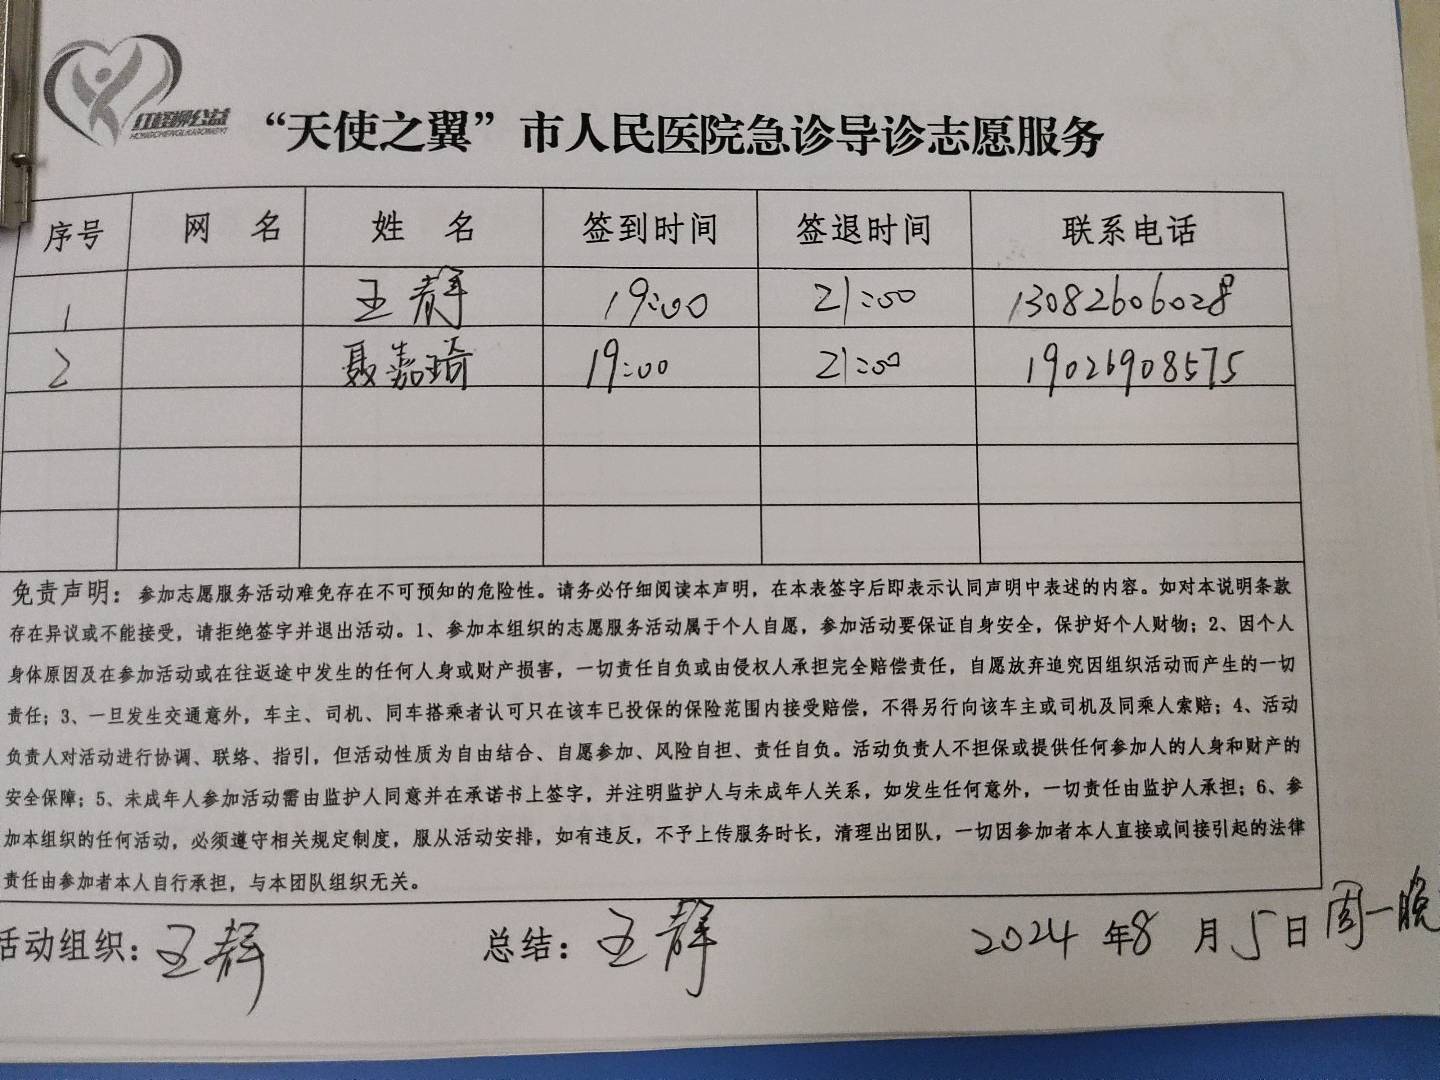 红橙柳公益
“天使之翼”市人民医院急诊导诊志愿服务
序号 网 名 姓 名 签到时间 签退时间 联系电话
1 王静 19:00 21:00 13082606028
2 聂嘉琦 19:00 21:00 19026908575
免责声明：参加志愿服务活动难免存在不可预知的危险性。请务必仔细阅读本声明，在本表签字后即表示认同声明中表述的内容。如对本说明条款
存在异议或不能接受，请拒绝签字并退出活动。1、参加本组织的志愿服务活动属于个人自愿，参加活动要保证自身安全，保护好个人财物；2、因个人
身体原因及在参加活动或在往返途中发生的任何人身或财产损害，一切责任自负或由侵权人承担完全赔偿责任，自愿放弃追究因组织活动而产生的一切
责任；3、一旦发生交通意外，车主、司机、同车搭乘者认可只在该车已投保的保险范围内接受赔偿，不得另行向该车主或司机及同乘人索赔；4、活动
负责人对活动进行协调、联络、指引，但活动性质为自由结合、自愿参加、风险自担、责任自负。活动负责人不担保或提供任何参加人的人身和财产的
安全保障；5、未成年人参加活动需由监护人同意并在承诺书上签字，并注明监护人与未成年人关系，如发生任何意外，一切责任由监护人承担；6、参
加本组织的任何活动，必须遵守相关规定制度，服从活动安排，如有违反，不予上传服务时长，清理出团队，一切因参加者本人直接或间接引起的法律
责任由参加者本人自行承担，与本团队组织无关。
活动组织：王静 总结：王静 2024年8月5日周一晚